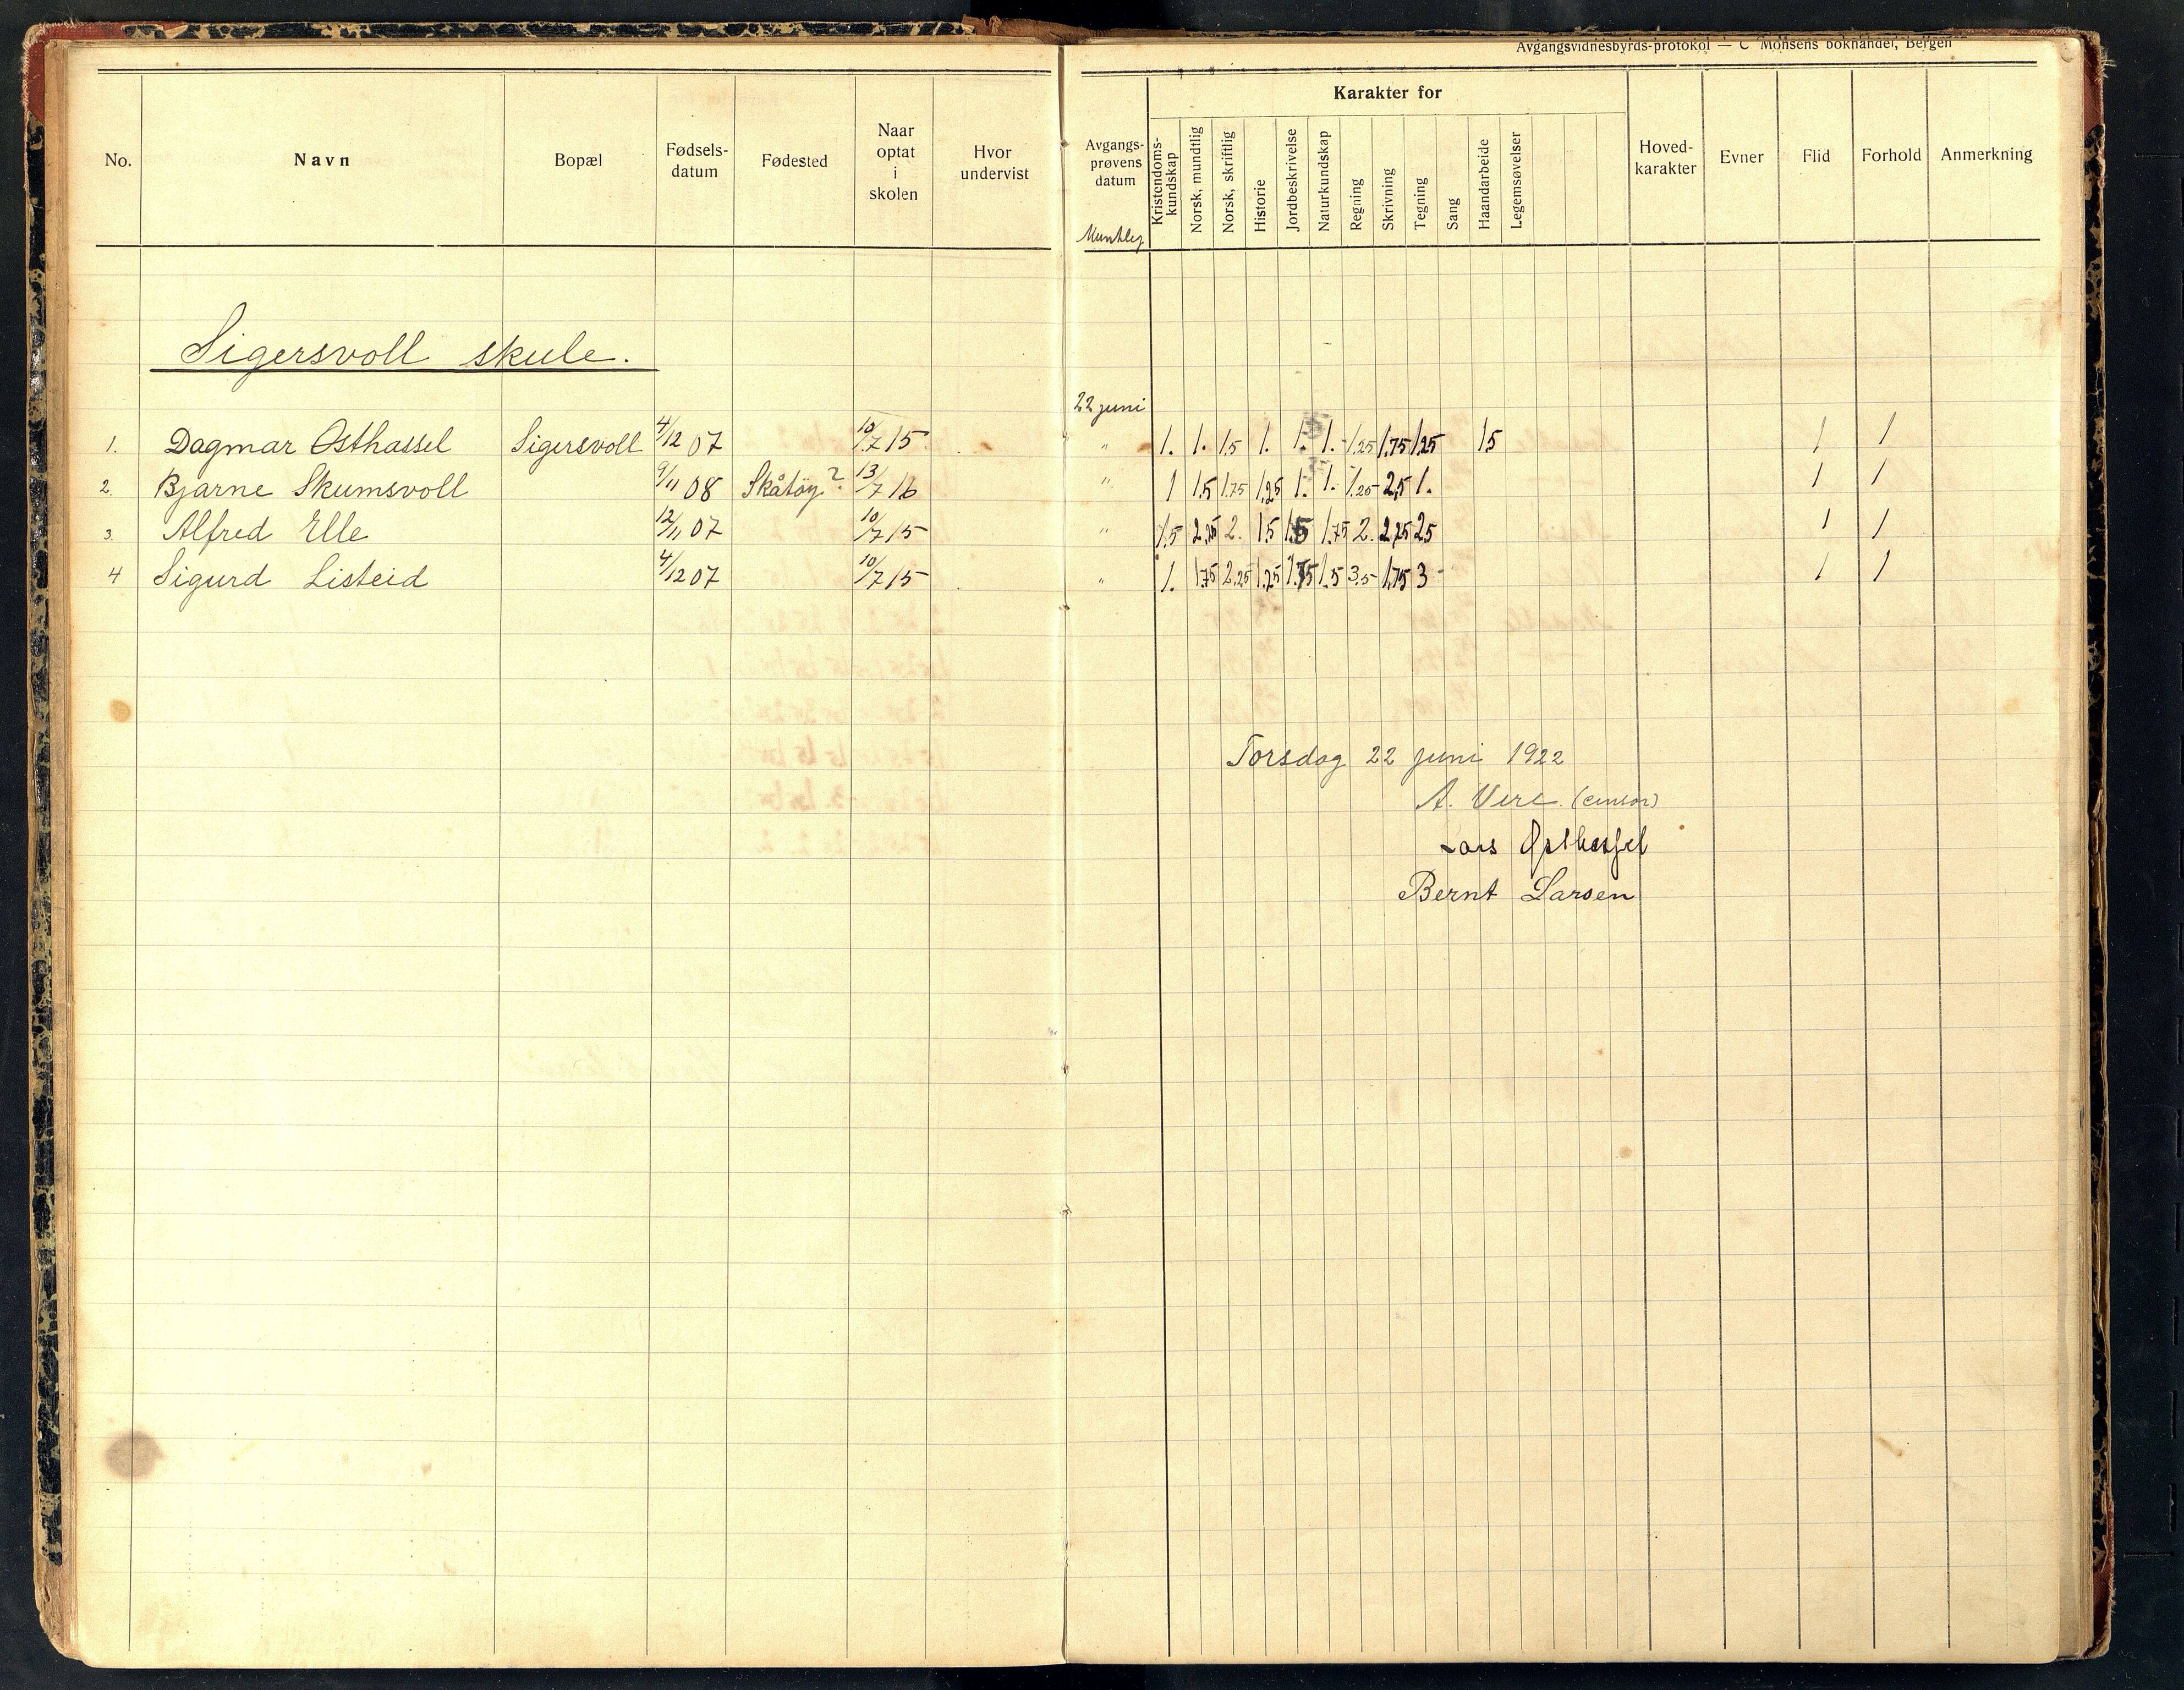 Avgangsvidnesbyrds-protokol — C Monsens bokhandel, Bergen
No. Navn Bopæl Fødsels-datum Fødested Naar optat i skolen Hvor undervist Avgangs-prøvens datum Karakter for Hoved-karakter Evner Flid Forhold Anmerkning
Kristendoms-kundskap Norsk, mundtlig Norsk, skriftlig Historie Jordbeskrivelse Naturkundskap Regning Skrivning Tegning Sang Haandarbeide Legemsøvelser
Sigersvoll skule.
22 juni
1. Dagmar Østhassel Sigersvoll 4/12 07 10/7 15 " 1. 1. 1.5 1. 1. 1. 1.25 1.75 1.25 1.5 1 1
2. Bjarne Skumsvoll 9/11 08 Skåtøy? 13/7 16 " 1 1.5 1.75 1.25 1. 1. 1.25 2.5 1. 1 1
3. Alfred Elle 12/11 07 10/7 15 " 1.5 2.25 2. 1.5 1.5 1.75 2. 2.75 2.5 1 1
4 Sigurd Listeid 4/12 07 10/7 15 " 1. 1.75 2.25 1.25 1.75 1.5 3.5 1.75 3 1 1
Torsdag 22 juni 1922
A. Vere. (censor)
Lars Østhassel
Bernt Larsen